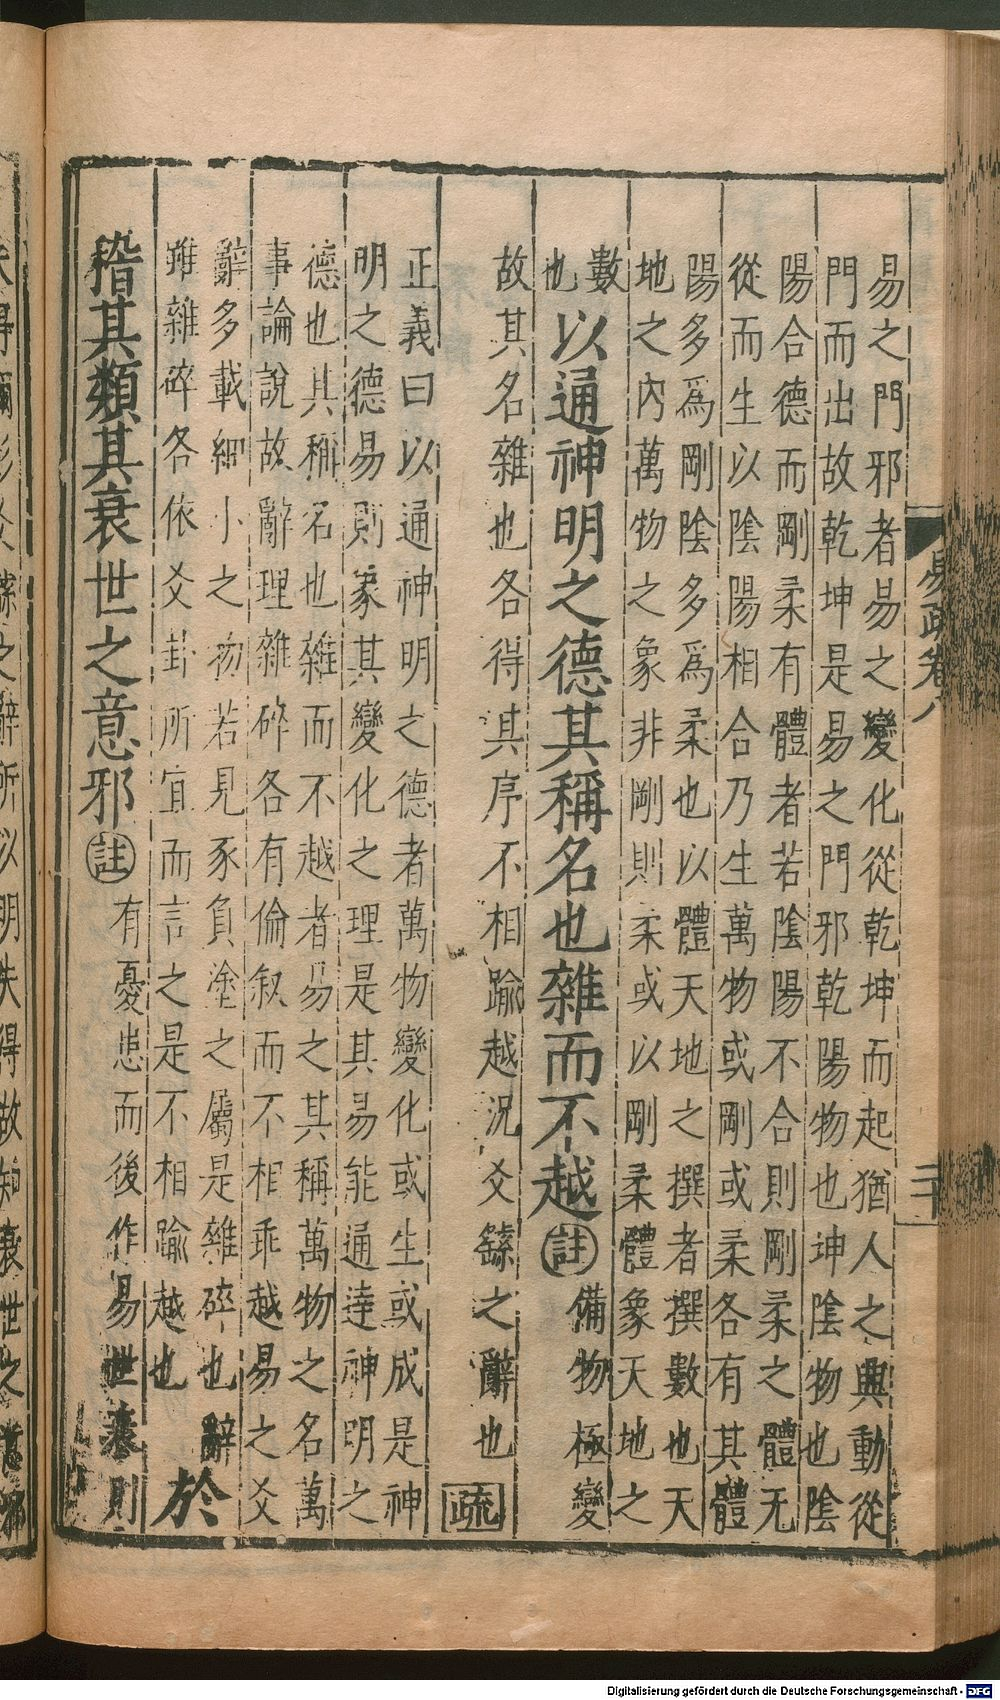 易疏卷八
二十
易之門邪者易之變化從乾坤而起猶人之興動從
門而出故乾坤是易之門邪乾陽物也坤陰物也陰
陽合德而剛柔有體者若陰陽不合則剛柔之體无
從而生以陰陽相合乃生萬物或剛或柔各有其體
陽多爲剛陰多爲柔也以體天地之撰者撰數也天
地之內萬物之象非剛則柔或以剛柔體象天地之
數
也
以通神明之德其稱名也雜而不越註備物極變
故其名雜也各得其序不相踰越況爻繇之辭也疏
正義曰以通神明之德者萬物變化或生或成是神
明之德易則象其變化之理是其易能通達神明之
德也其稱名也雜而不越者易之其稱萬物之名萬
事論說故辭理雜碎各有倫叙而不相乖越易之爻
辭多載細小之物若見豕負塗之屬是雜碎也辭
雖雜碎各依爻卦所宜而言之是不相踰越也於
稽其類其衰世之意邪註有憂患而後作易世衰則
失得彌彰爻繇之辭所以明失得故知衰世之意邪
Digitalisierung gefördert durch die Deutsche Forschungsgemeinschaft - DFG